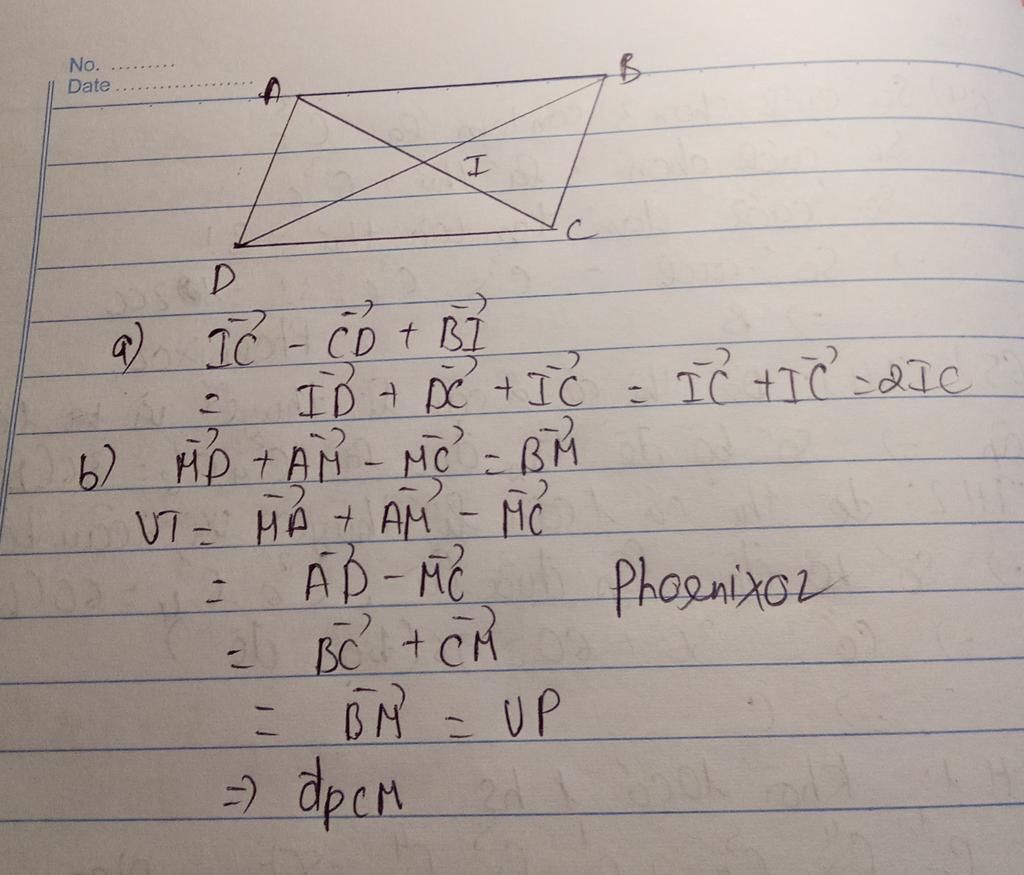 No. .........
Date ....................
A B
I
C
D
a) $\vec{IC} - \vec{CD} + \vec{BI}$
$= \vec{ID} + \vec{DC} + \vec{IC} = \vec{IC} + \vec{IC} = 2IC$
b) $\vec{MD} + \vec{AM} - \vec{MC} = \vec{BM}$
VT = $\vec{MA} + \vec{AM} - \vec{MC}$
$= \vec{AD} - \vec{MC}$
Phoenix02
$= \vec{BC} + \vec{CM}$
$= \vec{BM}$ = VP
=> dpcM